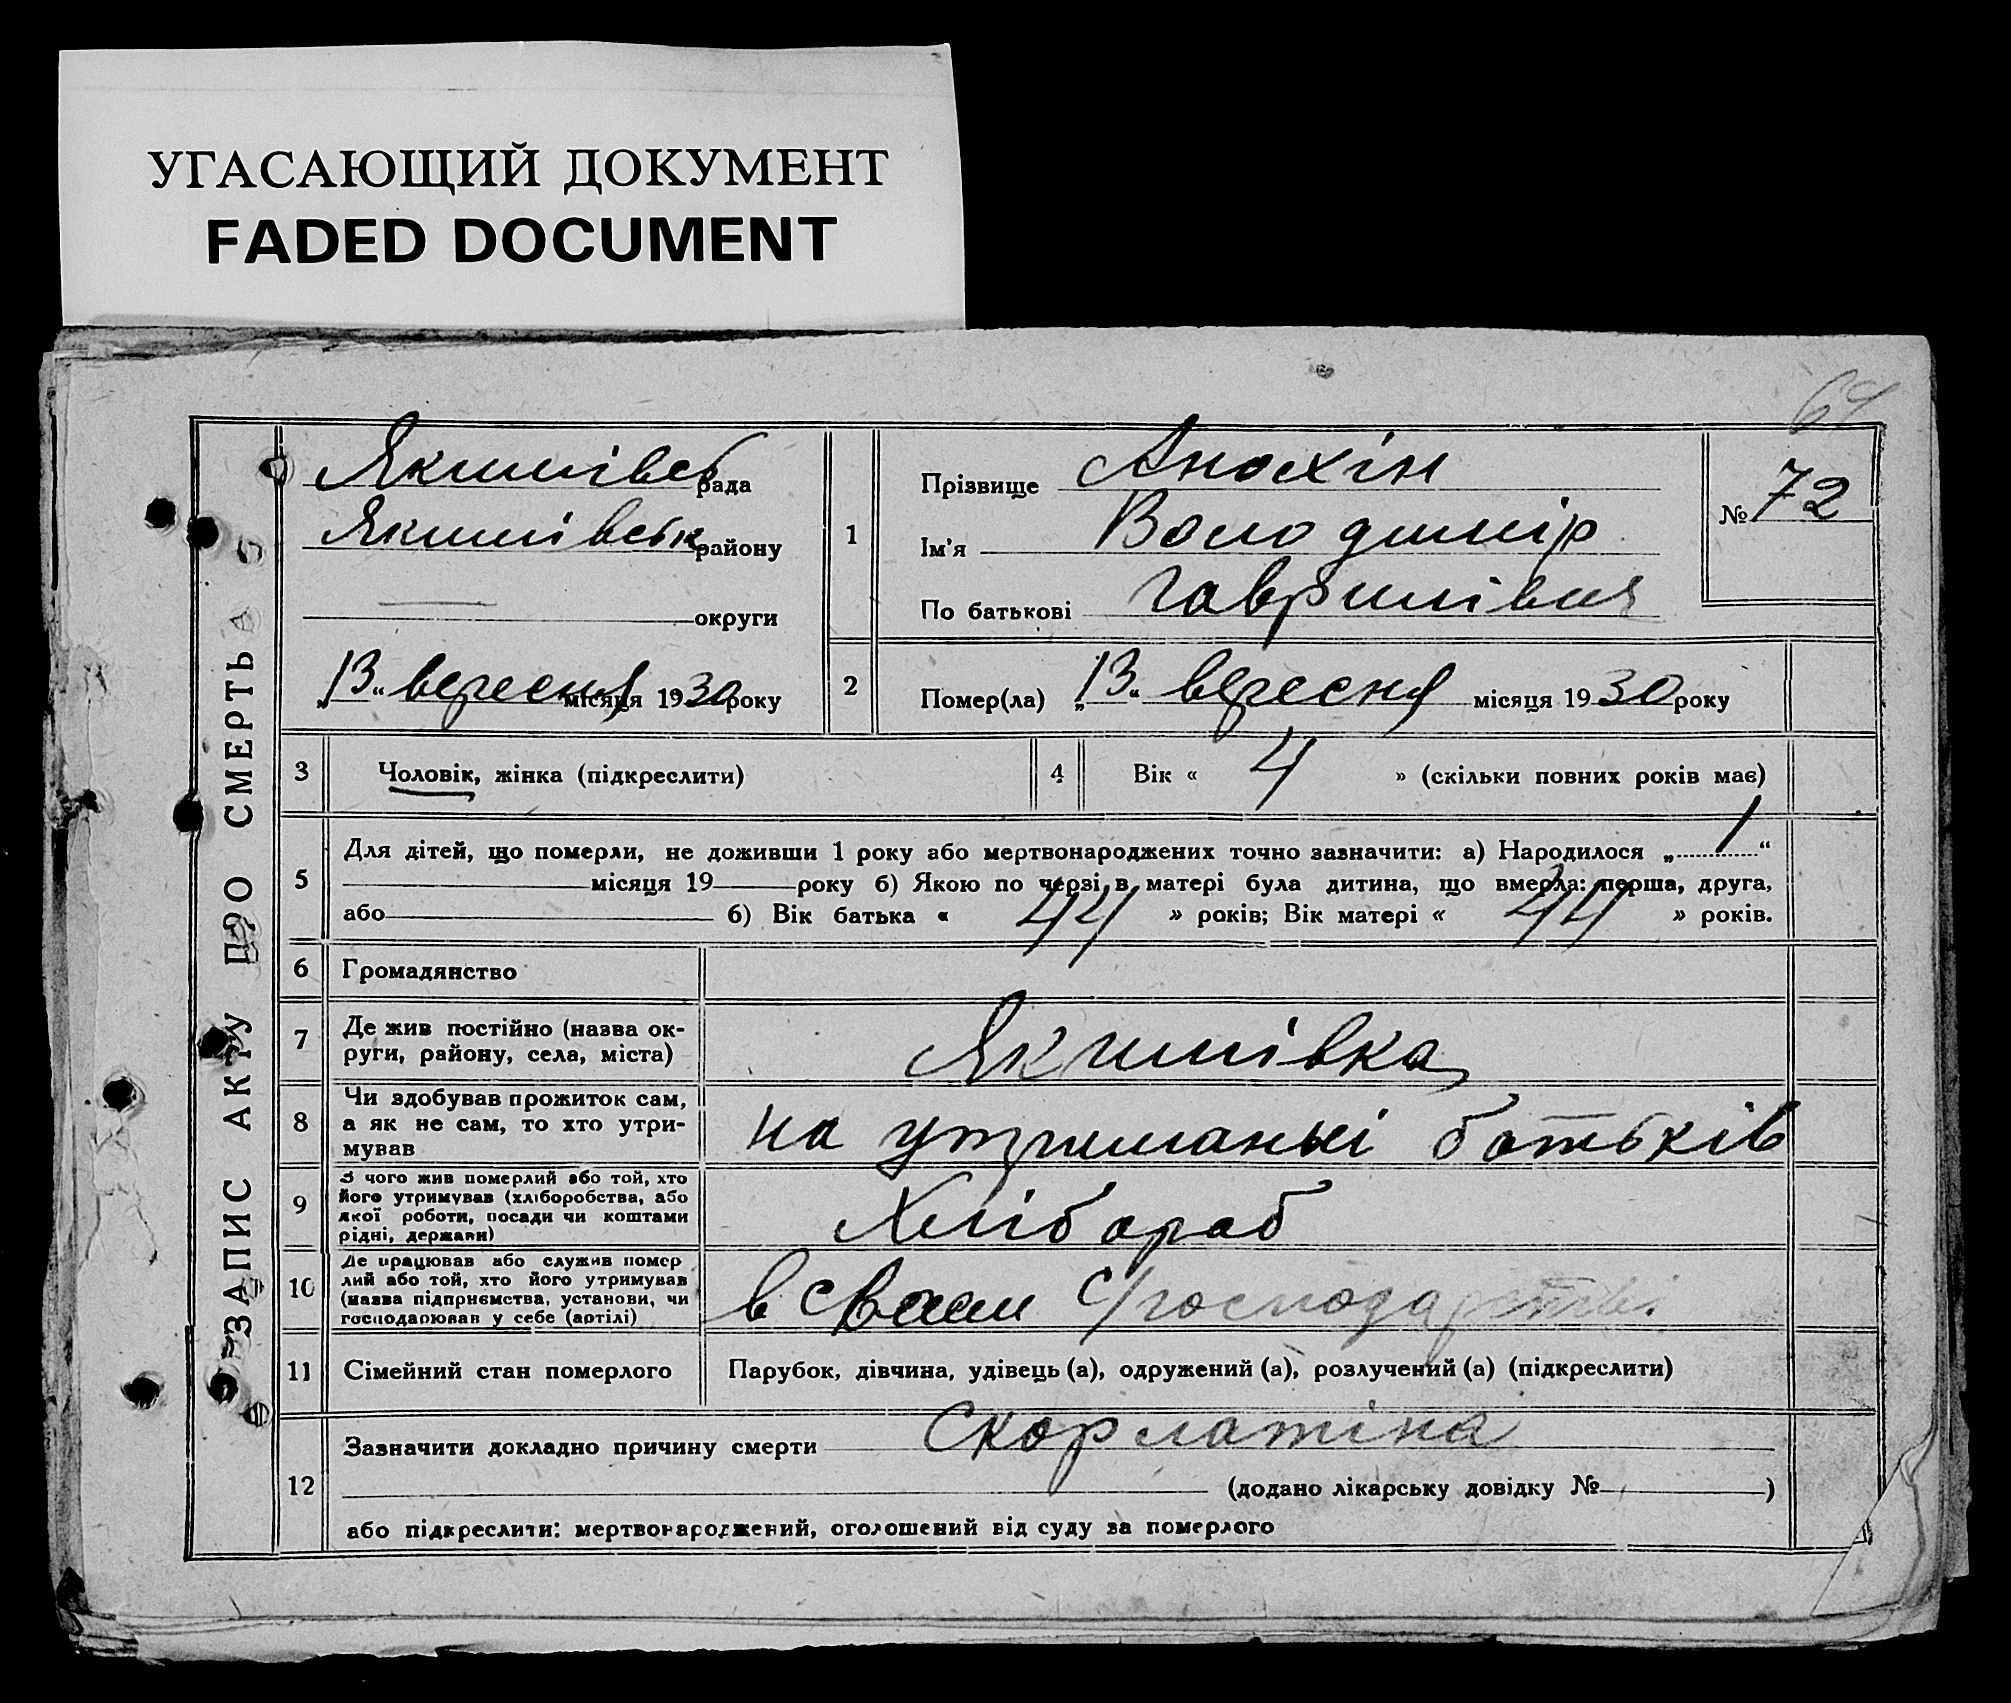 УГАСАЮЩИЙ ДОКУМЕНТ
FADED DOCUMENT
64
ЗАПИС АКТУ ПРО СМЕРТЬ
Якимівсь рада
Якимівськ району
округи
„13“ вересня місяця 1930 року
1
Прізвище Анохін
Ім'я Володимір
По батькові Гаврилівич
№ 72
2
Помер(ла) „13“ вересня місяця 1930 року
3
Чоловік, жінка (підкреслити)
4
Вік « 4 » (скільки повних років має)
5
Для дітей, що померли, не доживши 1 року або мертвонароджених точно зазначити: а) Народилося „ 1 “
місяця 19 року б) Якою по черзі в матері була дитина, що вмерла: перша, друга,
або б) Вік батька « 44 » років; Вік матері « 44 » років.
6
Громадянство
7
Де жив постійно (назва ок-
руги, району, села, міста)
Якимівка
8
Чи здобував прожиток сам,
а як не сам, то хто утри-
мував
на утриманьі батьків
9
З чого жив померлий або той, хто
його утримував (хліборобства, або
якої роботи, посади чи коштами
рідні, держави)
Хлібороб
10
Де працював або служив помер
лий або той, хто його утримував
(назва підприємства, установи, чи
господарював у себе (артілі)
в своем с/господарстві.
11
Сімейний стан померлого
Парубок, дівчина, удівець (а), одружений (а), розлучений (а) (підкреслити)
12
Зазначити докладно причину смерти Скорлатіна
(додано лікарську довідку № )
або підкреслити: мертвонароджений, оголошений від суду за померлого